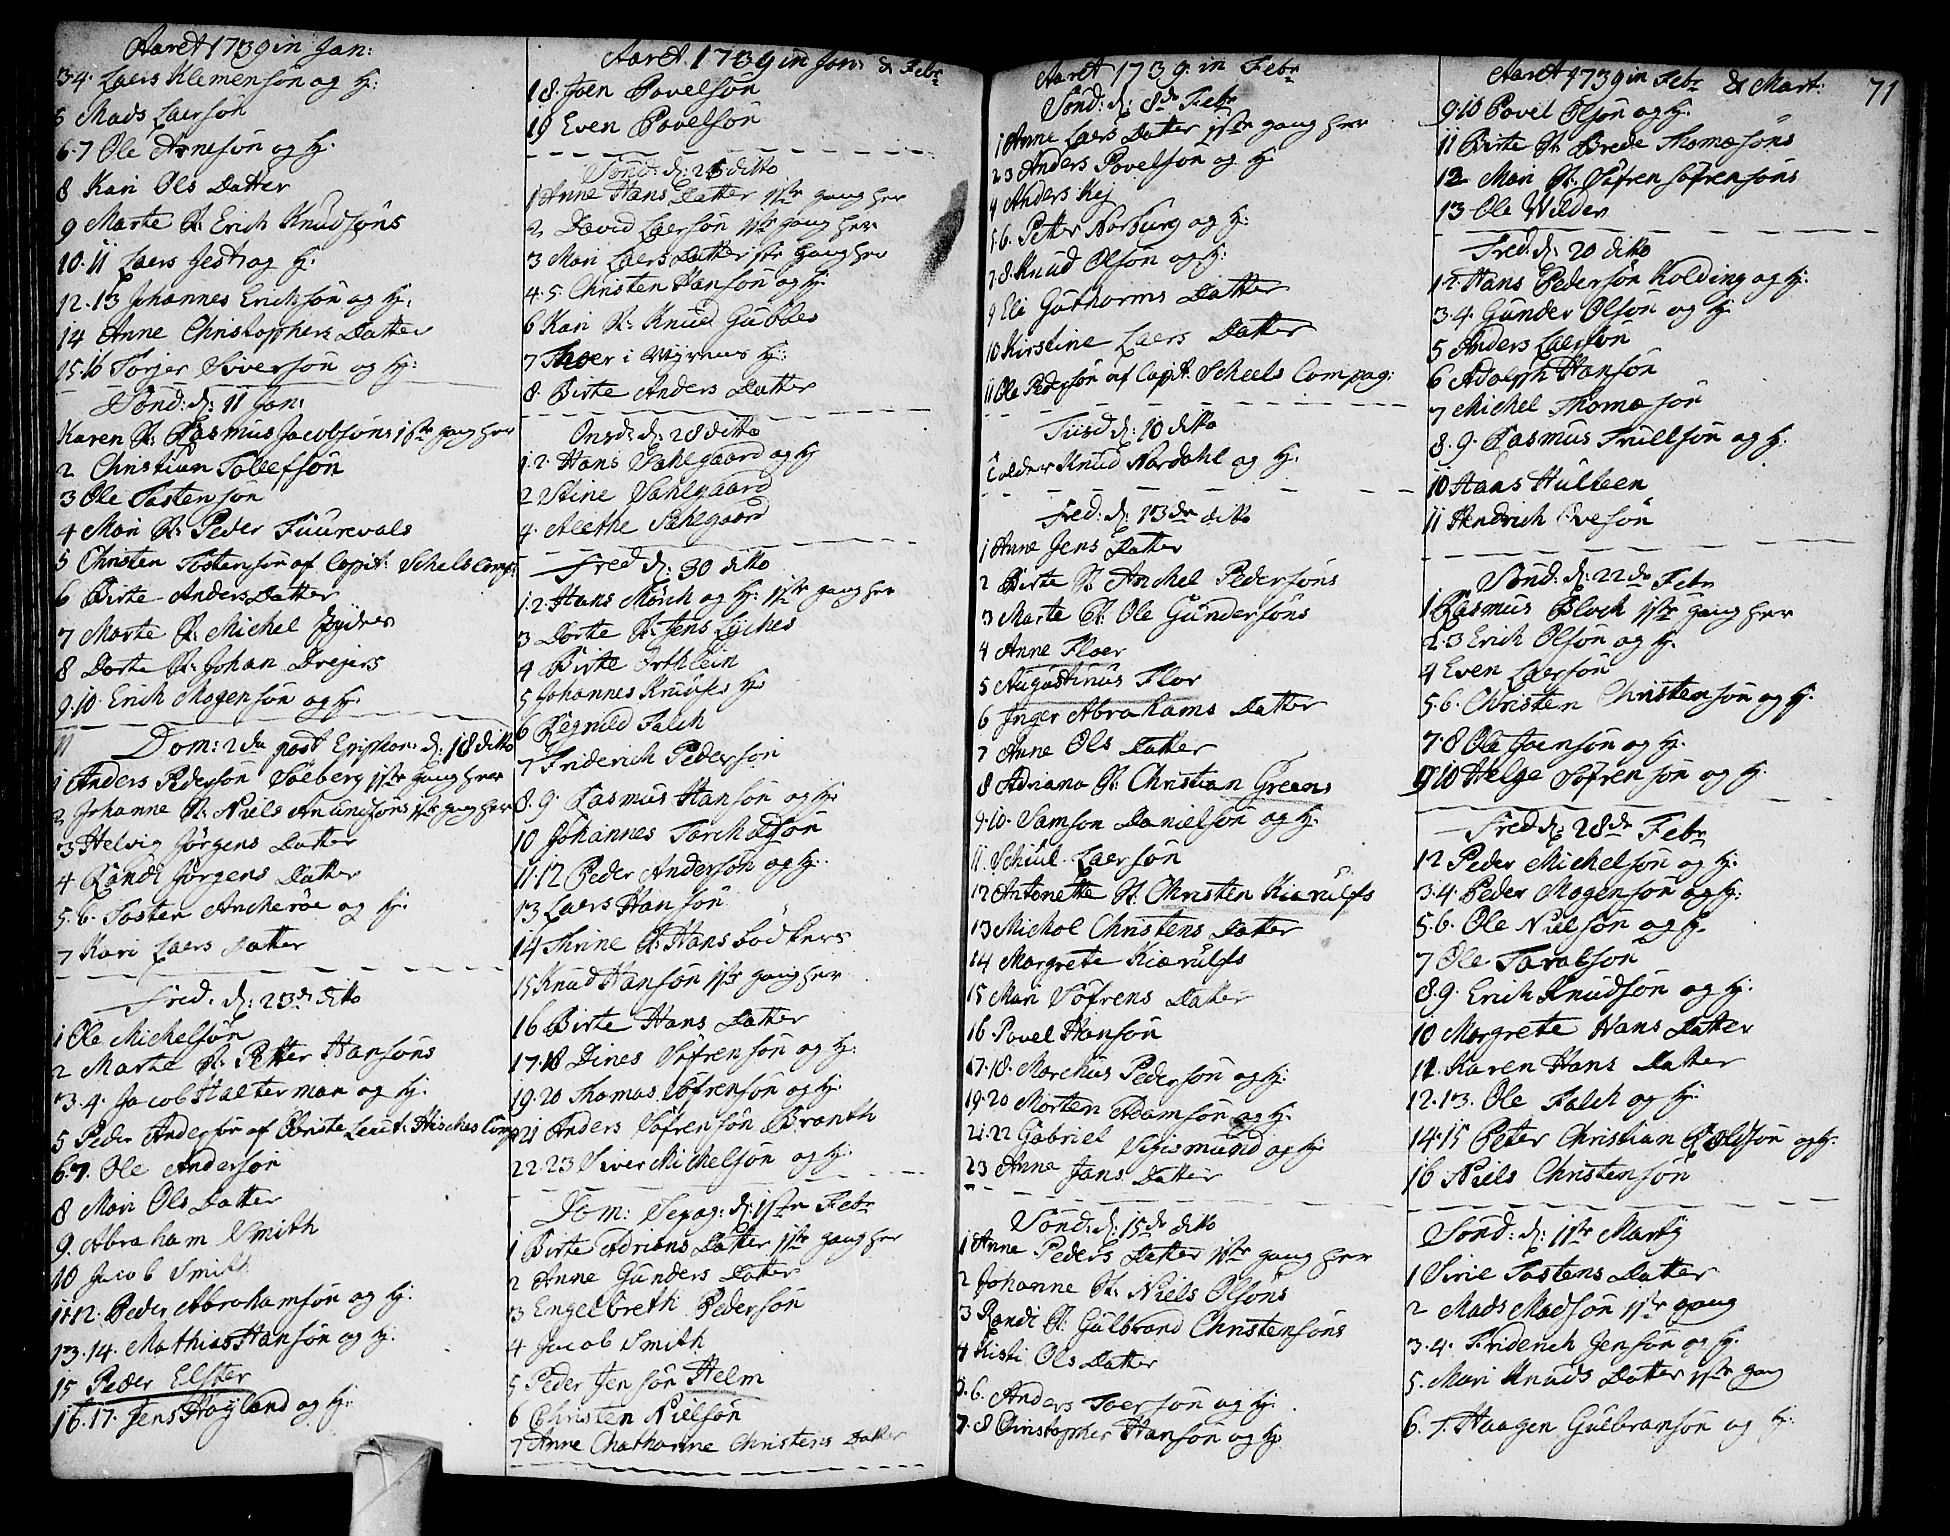 Aaret 1739 in Jan:
3·4· Laers Klemensøn og H:
5 Mads Laersøn
6·7 Ole Arnesøn og H:
8 Kari Ols Datter
9 Marte N: Erich Knudsøns
10·11 Laers Jestrog H:
12·13 Johannes Erichsøn og H:
14 Anne Christophers Datter
15·16 Torjer Siversøn og H:
Sønd: d: 11 Jan:
Karen N: Rasmus Jacobsøns 1ste gang her
2 Christian Tollefsøn
3 Ole Tostensøn
4 Mari N: Peder Fuurevals
5 Christen Tostensøn af Capit: Schels Comp:
6 Birte Anders Datter
7 Marte N: Michel
8 Dorte N: Johan Drejers
9·10· Erich Mogensøn og H:
Dom: 2da post Epiphan: d: 18 ditto
1 Anders Pedersøn Søeberg 1ste gang her
2 Johanne N: Niels Amundsøns 1ste gang her
3 Helvig Jørgens Datter
4 Randi Jørgens Datter
5·6· Tosten Ancherøe og H:
7 Kari Laers Datter
Fred: d: 23de ditto
1 Ole Michelsøn
2 Marte N: Petter Hansøns
3·4· Jacob Halterman og H:
5 Peder Andersøn af Obriste Leut: Hisches Comp
6·7· Ole Andersøn
8 Mari Ols Datter
9· Abraham Smith
10 Jacob Smith
11·12· Peder Abrahamsøn og H:
13·14· Mathias Hansøn og H:
15 Peder Elster
16·17· Jens Høyland og H:
Aaret 1739 in Jan: & Febr
18· Joen Povelsøn
19 Even Povelsøn
Sønd: d: 25 ditto
1 Anne Hans Datter 1ste gang her
2 David Laersøn 1ste gang her
3 Mari Laers Datter 1ste gang her
4·5· Christen Hansøn og H:
6 Kari N: Knud Gubbes
7 Thoer i H:
8· Birte Anders Datter
Onsd: d: 28 ditto
1·2· Hans Sahlgaard og H
2 Stine Sahlgaard
4· Alethe Sahlgaard
Fred d: 30 ditto
1·2· Hans Mørch og H: 1ste gang her
3 Dorte N: Jens Lyches
4 Birte Orthlein
5 Johannes Kruuses H:
6 Regnild Falch
7 Friderich Pedersøn
8·9· Rasmus Hansøn og H:
10 Johannes Torchadsøn
11·12 Peder Andersøn og H:
13 Laers Hansøn
14 Thrine N: Hans Bødkers
15 Knud Hansøn 1ste gang her
16 Birte Hans Datter
17·18 Dines Søfrensøn og H:
19·20 Thomas Søfrensøn og H:
21 Anders Søfrensøn Branth
22·23 Siver Michelsøn og H:
Dom: Sexag: d: 1ste Febr
1 Birte Adrians Datter 1ste gang her
2 Anne Gunders Datter
3 Engelbreth Pedersøn
4 Jacob Smith
5 Peder Jensøn Helm
6 Christen Nielsøn
7 Anne Chatharine Christens Datter
Aaret 1739· in Febr
Sønd: d: 8de Febr
1 Anne Laers Datter 1ste gang her
2 3 Anders Povelsøn og H
4 Anders Kej
5·6· Petter Norburg og H:
7·8· Knud Olsøn og H:
9 Eli Guthorms Datter
10 Kirstine Laers Datter
11 Ole Pedersøn af Capit: Scheels Compag:
Tiisd d: 10 ditto
Tolder Knud Nordahl og H:
Fred: d: 13de ditto
1 Anne Jens Datter
2 Birte N: Anchel Pedersøns
3 Marte N: Ole Gundersøns
4 Anne Floer
5 Augustinus Flor
6 Inger Abrahams Datter
7 Anne Ols Datter
8 Adriana N: Christian Greens
9·10· Samson Danielsøn og H:
11 Schiul· Laersøn
12 Antonette N: Christen Kierulfs
13 Michol Christens Datter
14 Margrete Kierulfs
15 Mari Søfrens Datter
16 Povel Hansøn
17·18· Marchus Pedersøn og H:
19·20 Morten Adamsøn og H:
21·22 Gabriel Sigismund og H:
23 Anne Jans Datter
Sønd: d: 15de ditto
1 Anne Peders Datter 1ste gang her
2 Johanne N: Niels Olsøns
3 Randi N: Gulbrand Christensøns
4 Kisti Ols Datter
5·6· Anders Toersøn og H:
7·8 Christopher Hansøn og H:
Aaret 1739 in Febr & Mart: 71
9·10 Povel Olsøn og H:
11 Birte N: Brede Thomæsøns
12 Mari N: Søfren Søfrensøns
13 Ole Wilder
Fred: d: 20 ditto
1·2· Hans Pedersøn Kolding og H:
3·4· Gunder Olsøn og H
5 Anders Laersøn
6 Adolph Hansøn
7 Michel Thomæsøn
8·9· Rasmus Trullsøn og H:
10 Hans Hulteen
11 Hendrich Evesøn
Sønd: d: 22de Febr
1 Rasmus Bloch 1ste gang her
2·3 Erich Olsøn og H:
4 Even Laersøn
5·6· Christen Christensøn og H:
7·8 Ole Joensøn og H:
9·10 Helge Søfrensøn og H:
Fred d: 28de Febr
1 2 Peder Michelsøn og H:
3·4· Peder Mogensøn og H:
5·6· Ole Nielsøn og H
7 Ole Taralsøn
8·9· Erich Knudsøn og H:
10 Margrete Hans Datter
11· Karen Hans Datter
12·13· Ole Falch og H:
14·15 Peter Christian Coldsøn og H:
16 Niels Christensøn
Sønd: d: 1ste Martij
1 Sirie Tostens Datter
2 Mads Madsøn 1ste gang
3·4· Friderich Jensøn og H:
5· Mari Knuds Datter 1ste gang
6·7· Haagen Gulbransøn og H: